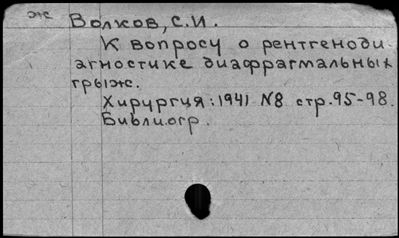 эж Волков, С.И.
К вопросу о рентгеноди-
агностике диафрагмальных
грыж.
Хирургия: 1941 №8 стр. 95-98.
Библиогр.